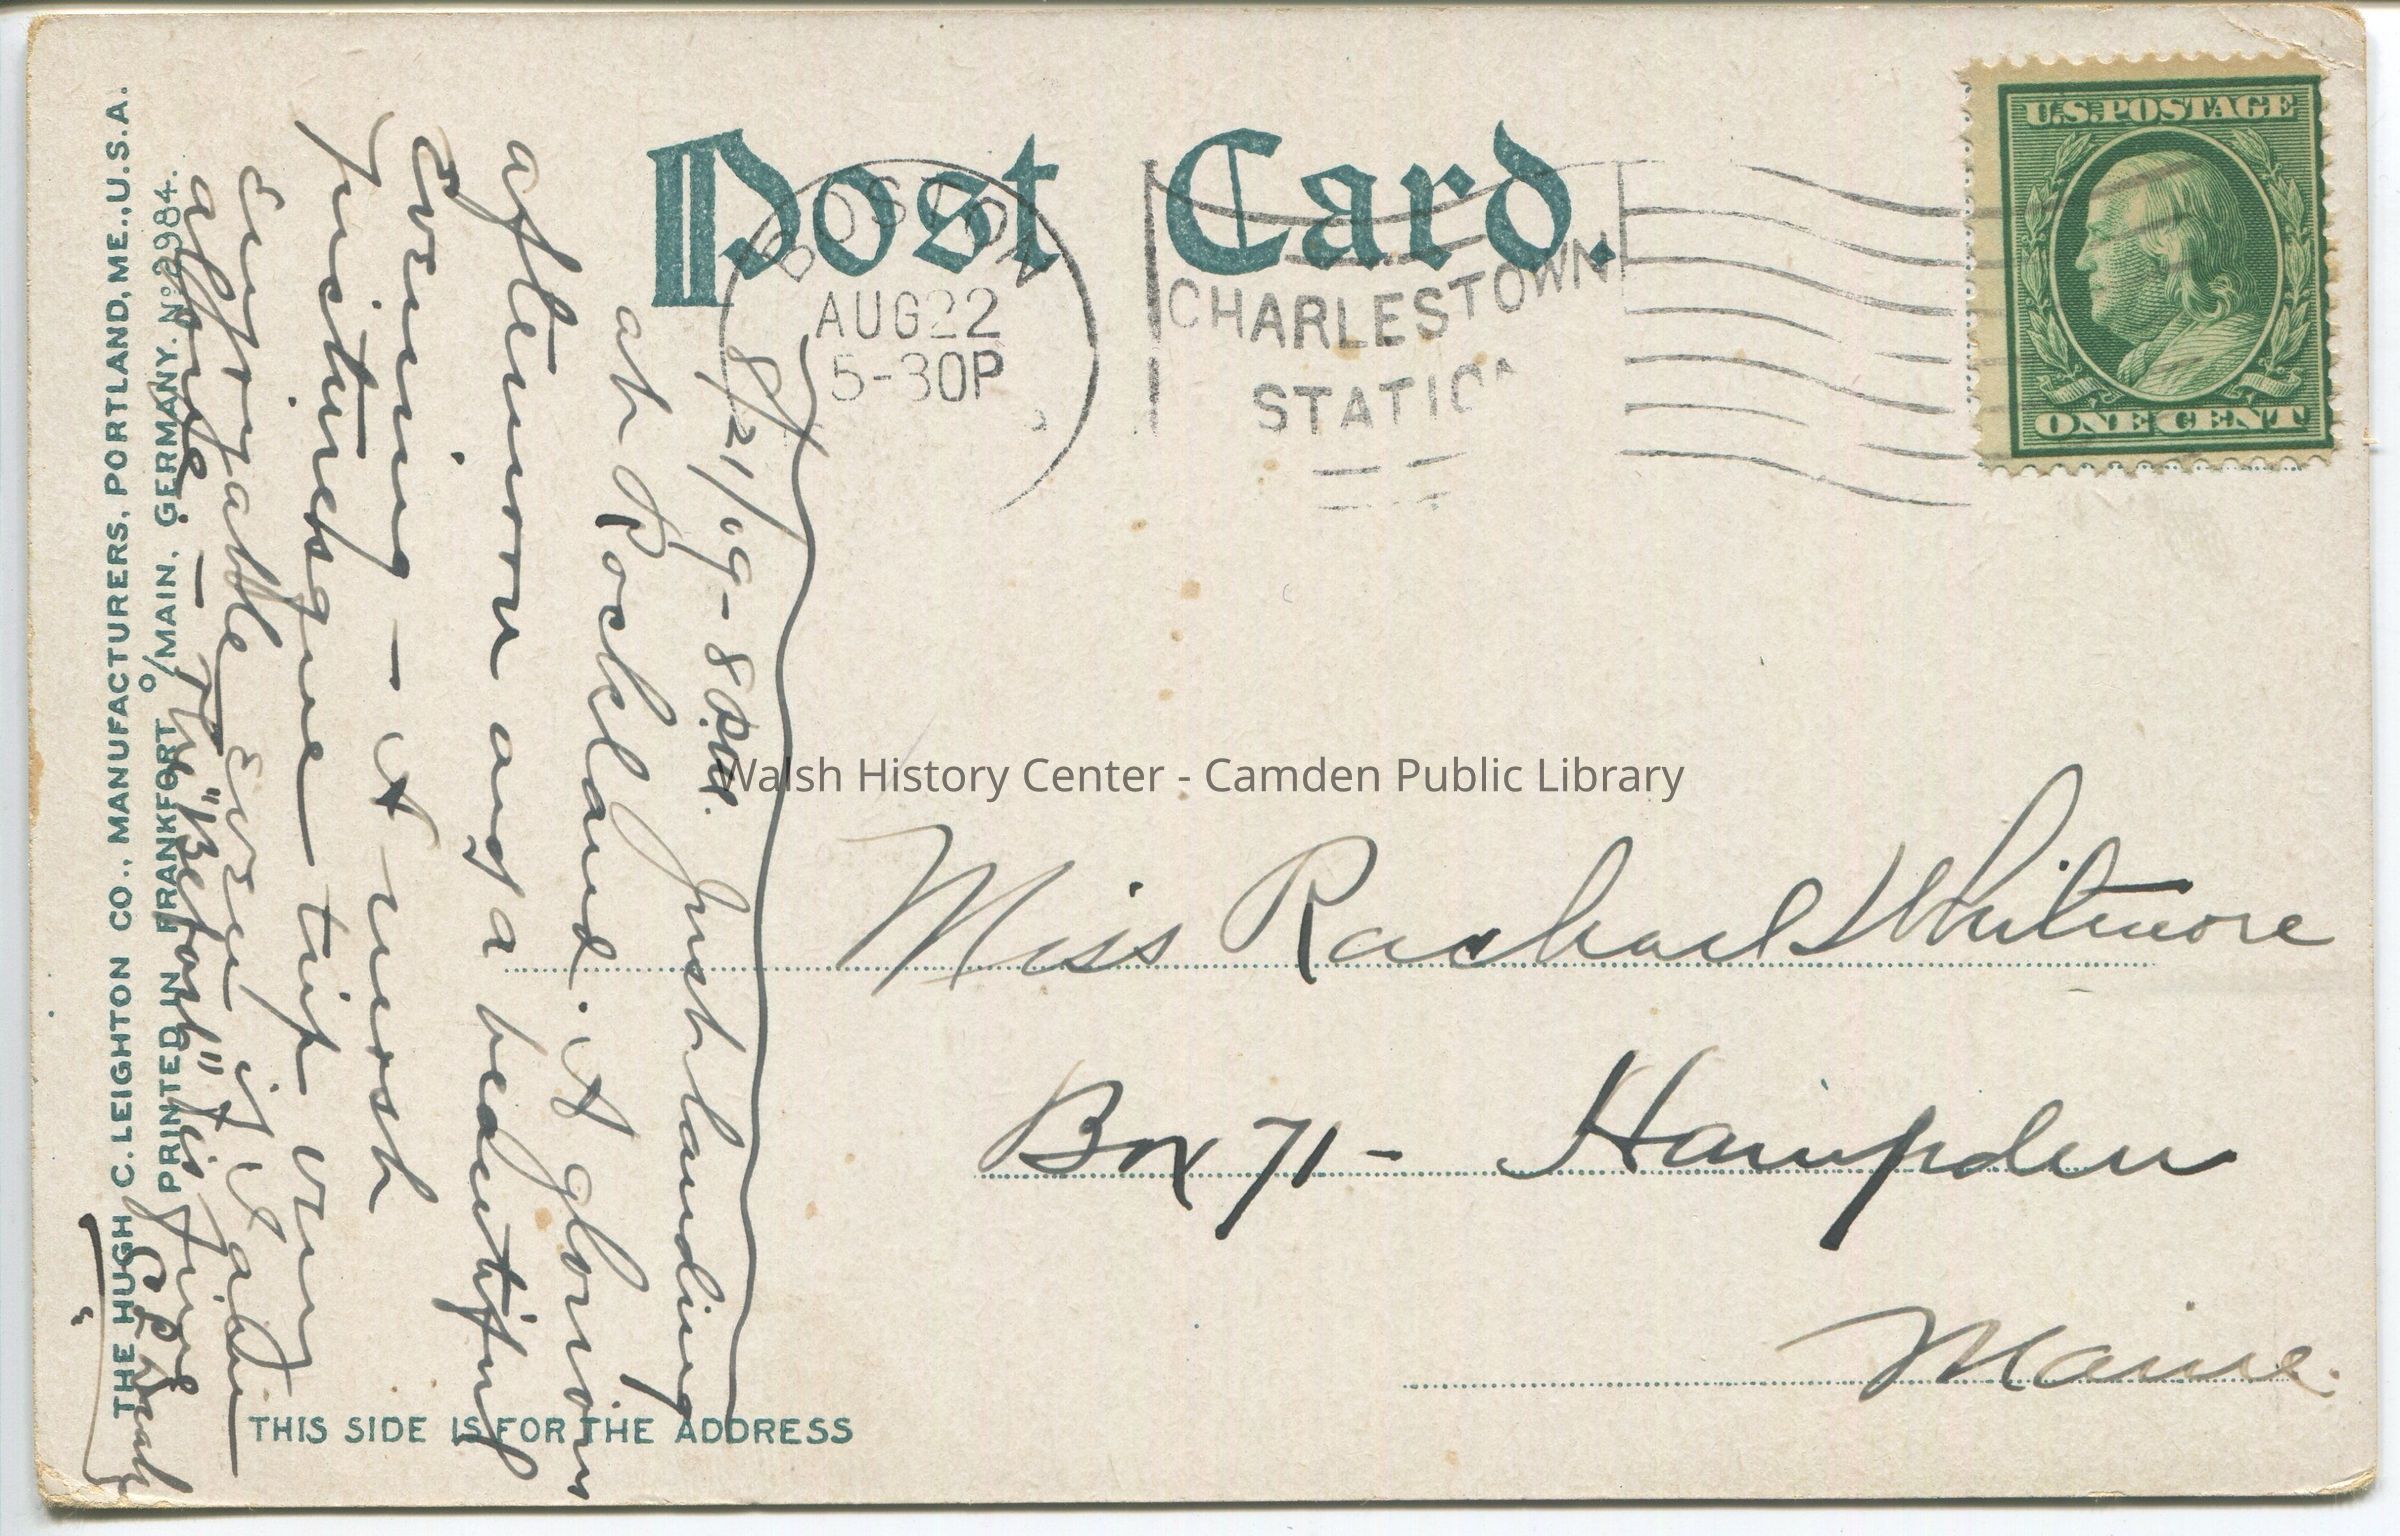 Post Card.
BOSTON
AUG 22
5-30P
CHARLESTOWN
STATION
U.S. POSTAGE
ONE CENT
8/21/09 - 8 P.M.
Just landing
at Rockland. A glorious
afternoon and a beautiful
evening - A most
picturesque trip. very
enjoyable even if I am
alone. - The "Belfast" is fine
Miss Rachael Whitmore
Box 71 - Hampden
Maine.
THIS SIDE IS FOR THE ADDRESS
THE HUGH C. LEIGHTON CO., MANUFACTURERS, PORTLAND, ME., U.S.A.
PRINTED IN FRANKFORT O/MAIN, GERMANY. No 2984.
Walsh History Center - Camden Public Library